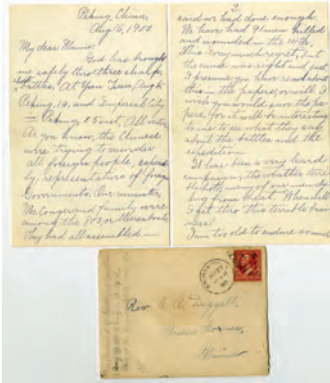 Peking, China,
Aug 16, 1900
My dear Minnie:
God has brought
me safely thru three sharp
battles. At Yan Tsun, Aug 6
Peking, 14, and Imperial City
Peking 15 inst. All
As you know, the Chinese
were trying to murder
all foreign people,
by representatives of foreign
Governments. Our minister,
Mr. Conger and family were
among the
They had all assembled
said we had done enough.
We have had 9 men killed
and wounded in the 14th,
This very much regret, but
the cause was right and just.
I presume you have read about
this in the papers, or will. I
wish you would save the pa-
pers, for it will be interesting
to me to see what they say
about the battles and the
It has been a very hard
campaign, the
both many of our men dy-
ing from heat. When shall
I get thro this terrible busi-
ness?
I am too old to endure so much
Rev. C. A. Daggett